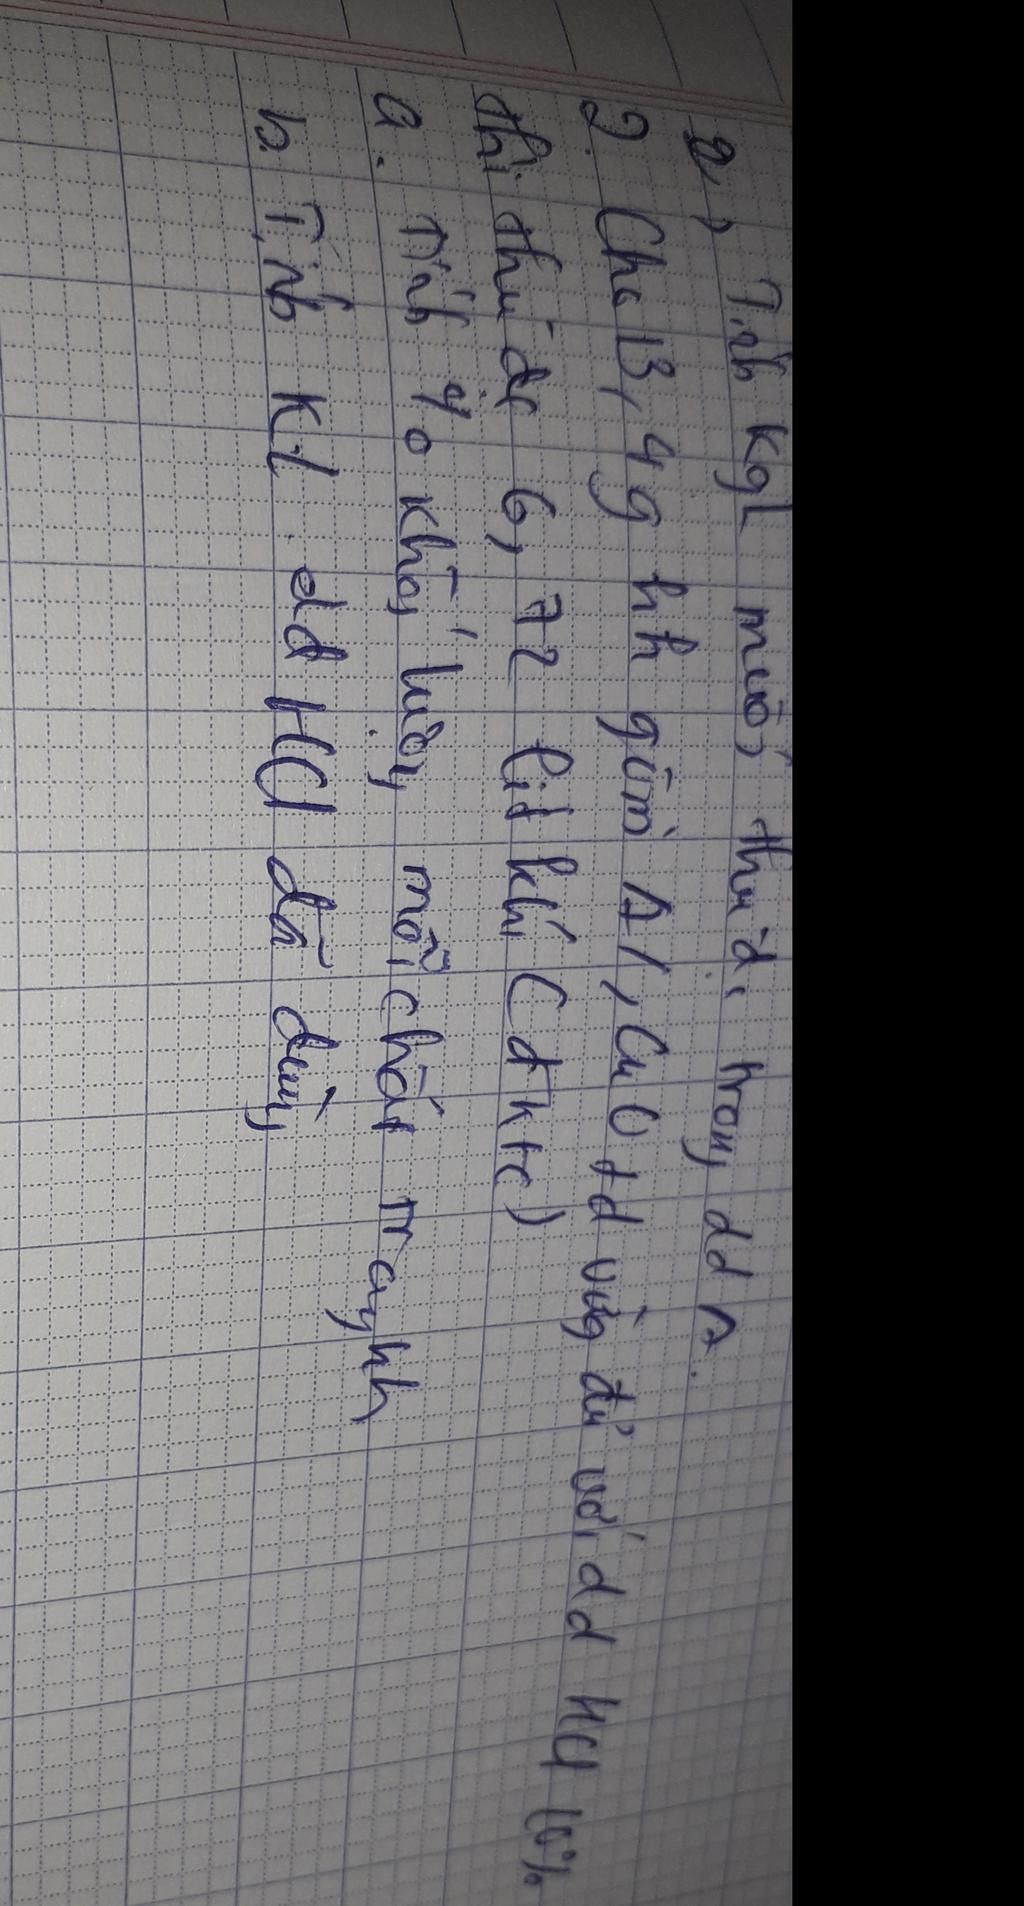 2, Tính kgl muối thu đ. trong dd A.
2. Cho 13,4g hh gồm Al, CuO td vừa đủ với dd HCl 10%
thì thu đc 6,72 lít khí (đktc)
a. Tính % khối lượng mỗi chất trong hh
b. Tính Kl dd HCl đã dùng